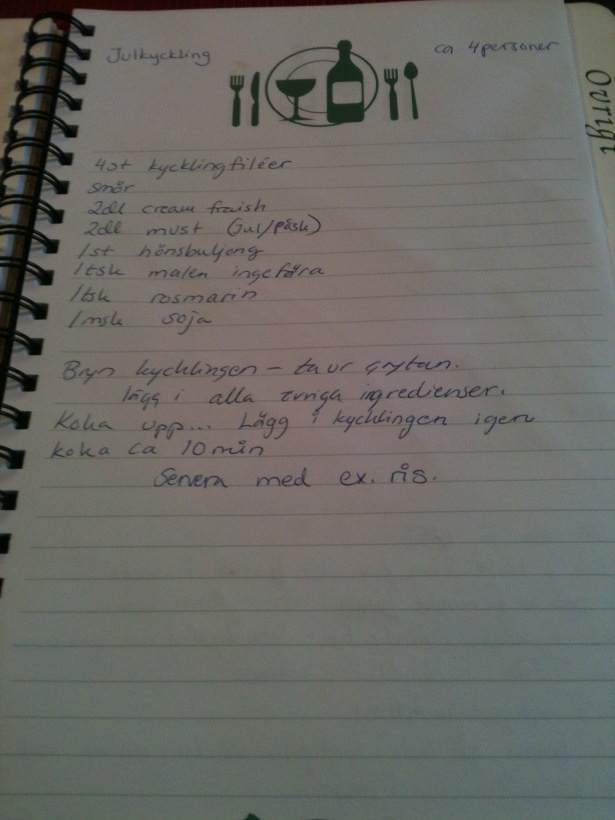 Julkyckling
ca 4 personer
Övrigt
4st kycklingfiléer
smör
2dl cream fraish
2dl must (Jul/påsk)
1st hönsbuljong
1tsk malen ingefära
1tsk rosmarin
1msk soja
Bryn kycklingen - ta ur grytan.
lägg i alla övriga ingredienser.
Koka upp... Lägg i kycklingen igen
koka ca 10 min
Servera med ex. ris.